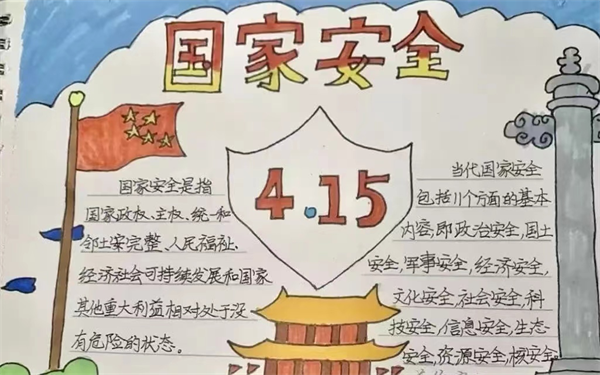 国家安全
4.15
国家安全是指
国家政权、主权、统一和
邻土完整、人民福祉、
经济社会可持续发展和国家
其他重大利益相对处于没
有危险的状态。
当代国家安全
包括11个方面的基本
内容,即政治安全,国土
安全,军事安全,经济安全,
文化安全,社会安全,科
技安全,信息安全,生态
安全,资源安全,核安全